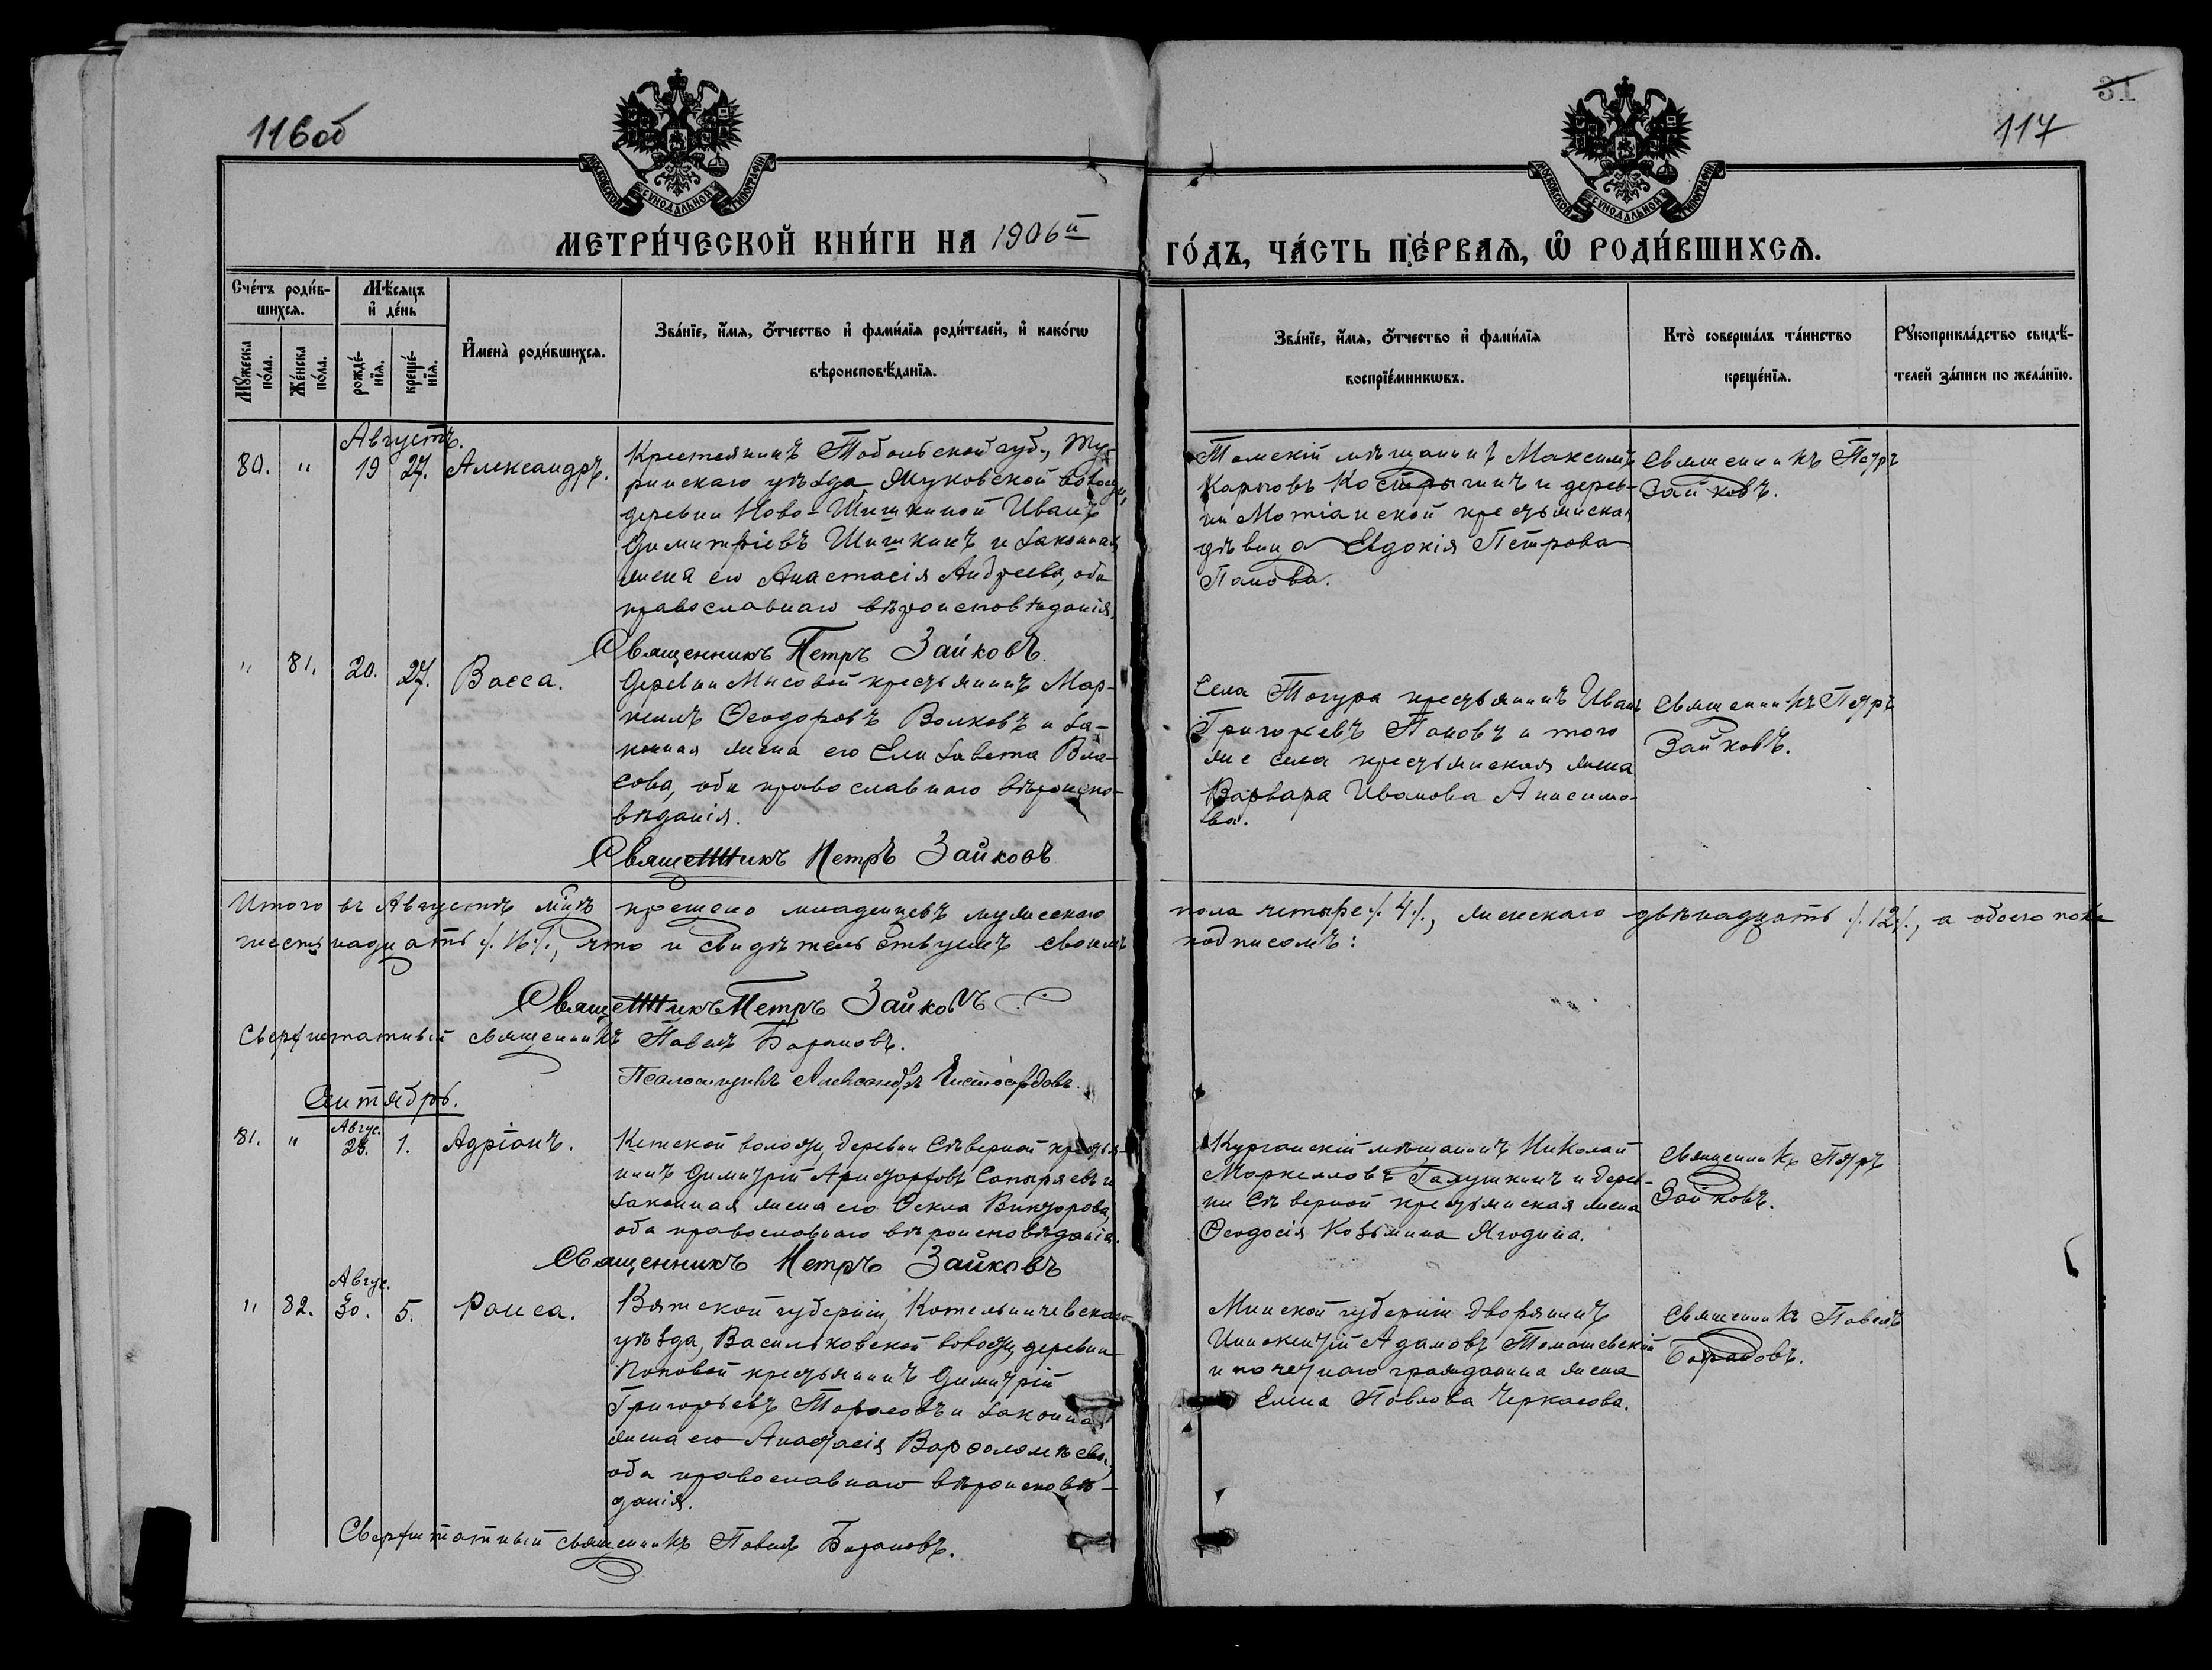 116об
31
117
МОСКОВСКОЙ СѴНОДАЛЬНОЙ ТИПОГРАФІИ
МОСКОВСКОЙ СѴНОДАЛЬНОЙ ТИПОГРАФІИ
МЕТРИ́ЧЕСКОЙ КНИ́ГИ НА 1906й
ГО́ДЪ, ЧА́СТЬ ПЕ́РВАЯ, Ѽ РОДИ́ВШИХСЯ.
Сче́тъ роди́в-
шихся.
Мѣ́сяцъ
и҆ де́нь
Мꙋ́жеска по́ла.
Же́нска по́ла.
рожде́-
нїя.
креще́-
нїя.
И҆мена̀ роди́вшихся.
Зва́нїе, и҆́мя, ѻ҆́тчество и҆ фами́лїя роди́телей, и҆ како́гѡ
вѣроисповѣ́данїя.
Зва́нїе, и҆́мя, ѻ҆́тчество и҆ фами́лїя
воспрїе́мникѡвъ.
Кто̀ соверша́лъ та́инство
креще́нїя.
Рꙋкоприкла́дство свидѣ́-
телей за́писи по жела́нїю.
Августъ.
80. " 19 27. Александръ.
Крестьянинъ Тобольской губ., Ту-
ринскаго уѣзда, Жуковской волости,
деревни Ново-Шишкиной Иванъ
Димитріевъ Шишкинъ и законная
жена его Анастасія Андреева, оба
православнаго вѣроисповѣданія.
Священникъ Петръ Зайковъ.
Томскій мѣщанинъ Максимъ
Карповъ Костры­гинъ и дерев-
ни Мотіанской крестьянская
дѣвица Евдокія Петрова
Панова.
Священникъ Петръ
Зайковъ.
" 81. 20. 27. Васса.
Деревни Мысовой крестьянинъ Мар-
кеилъ Ѳеодоровъ Волковъ и за-
конная жена его Елизавета Вла-
сова, оба православнаго вѣроиспо-
вѣданія.
Священникъ Петръ Зайковъ
Села Тогура крестьянинъ Иванъ
Григорьевъ Пановъ и того
же села крестьянская жена
Варвара Иванова Анисимо-
ва.
Священникъ Петръ
Зайковъ.
Итого въ Августѣ м-цѣ крещено младенцевъ мужескаго
пола четыре /.4./, женскаго двѣнадцать /.12./, а обоего пола
шестьнадцать /.16./, что и свидѣтельствуемъ своимъ
подписомъ:
Священникъ Петръ Зайковъ
Сверхштатный священникъ Павелъ Барановъ.
Псаломщикъ Александръ Чистосердовъ.
Сентябрь.
Авгус.
81. " 28. 1. Адріанъ.
Кетской волости, деревни Сѣверной крестья-
нинъ Димитрій Аристарховъ Сапыряевъ и
законная жена его Ѳекла Викторова,
оба православнаго вѣроисповѣданія.
Священникъ Петръ Зайковъ
Курганскій мѣщанинъ Николай
Маркелловъ Галушкинъ и дерев-
ни Сѣверной крестьянская жена
Ѳеодосія Козьмина Ягодина.
Священникъ Петръ
Зайковъ.
Авгус.
" 82. 30. 5. Раиса.
Вятской губерніи, Котельничевскаго
уѣзда, Васильковской волости, деревни
Поповой крестьянинъ Димитрій
Григорьевъ Тарасовъ и законная
жена его Анастасія Варѳоломѣева,
оба православнаго вѣроисповѣ-
данія.
Сверхштатный священникъ Павелъ Барановъ.
Минской губерніи дворянинъ
Иннокентій Адамовъ Томашевскій
и почетнаго гражданина жена
Елена Павлова Черкасова.
Священникъ Павелъ
Барановъ.